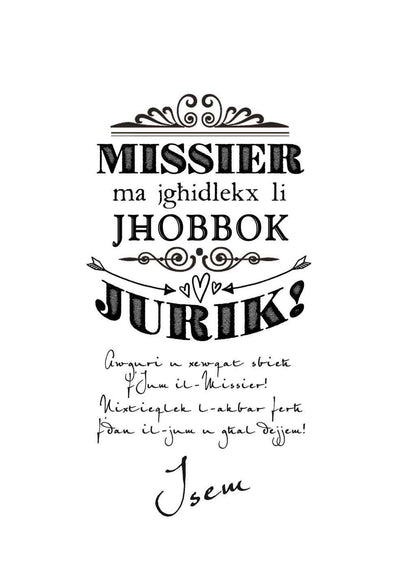 MISSIER
ma jgħidlekx li
JĦOBBOK
JURIK!
Awguri u xewqat sbieħ
f'Jum il-Missier!
Nixtieqlek l-akbar ferħ
f'dan il-jum u għal dejjem!
Isem